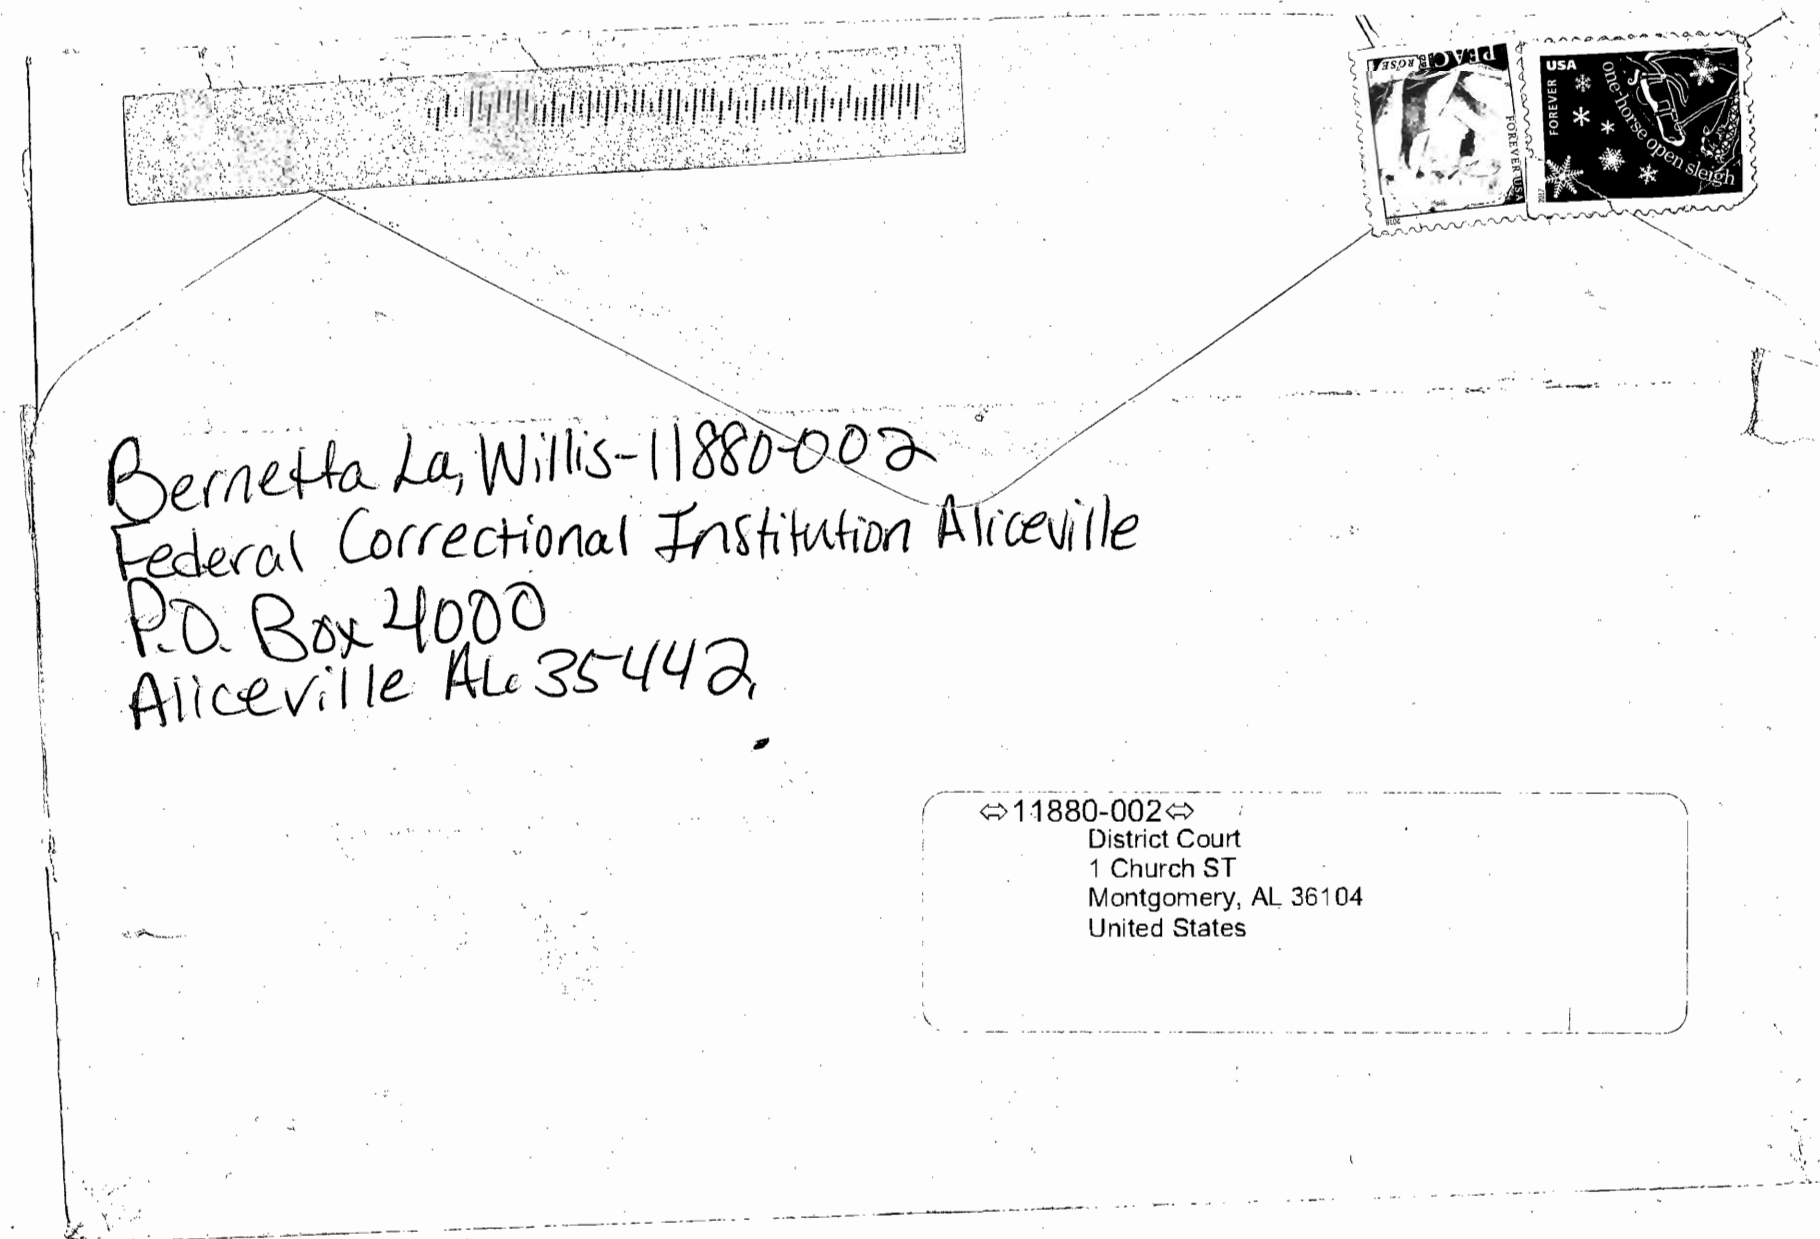 PEACE ROSE
FOREVER USA
2018
USA
FOREVER
one horse open sleigh
2017
Bernetta La, Willis-11880-002
Federal Correctional Institution Aliceville
P.O. Box 4000
Aliceville AL. 35442,
⇔11880-002⇔
District Court
1 Church ST
Montgomery, AL 36104
United States